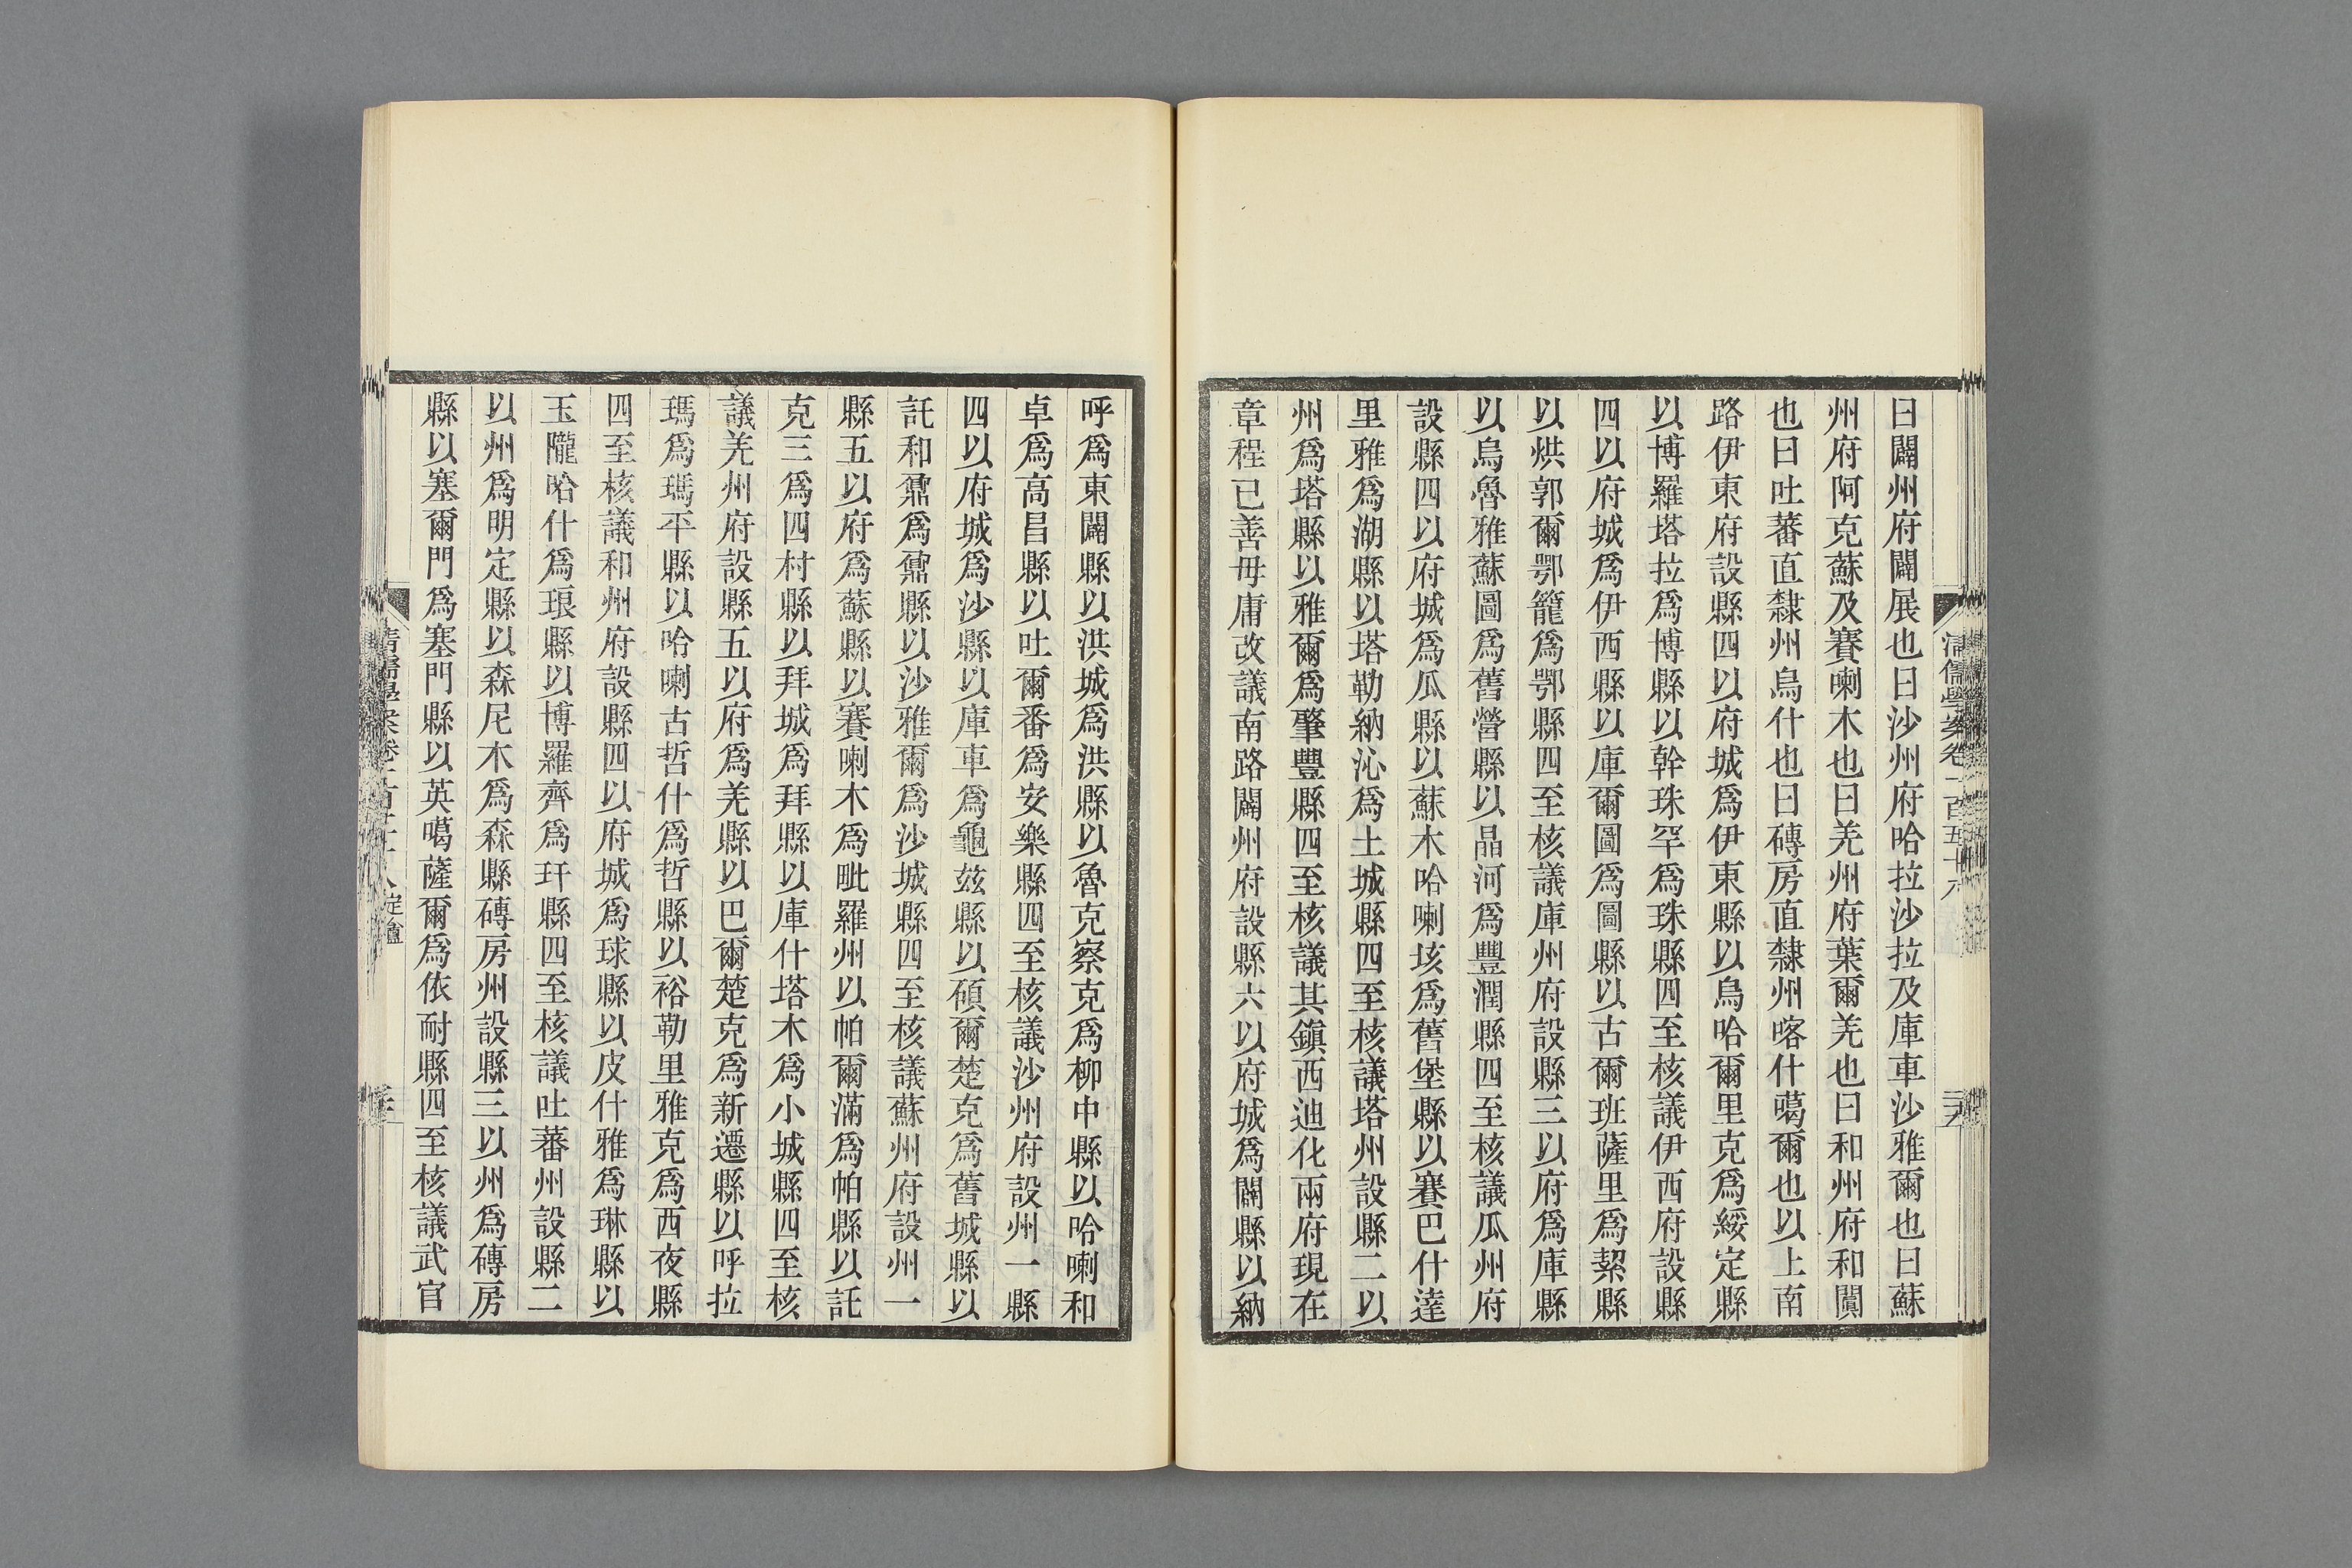 曰闢州府闢展也曰沙州府哈拉沙拉及庫車沙雅爾也曰蘇
州府阿克蘇及賽喇木也曰羌州府葉爾羌也曰和州府和闐
也曰吐蕃直隸州烏什也曰磚房直隸州喀什噶爾也以上南
路伊東府設縣四以府城爲伊東縣以烏哈爾里克爲綏定縣
以博羅塔拉爲博縣以幹珠罕爲珠縣四至核議伊西府設縣
四以府城爲伊西縣以庫爾圖爲圖縣以古爾班薩里爲絜縣
以烘郭爾鄂籠爲鄂縣四至核議庫州府設縣三以府爲庫縣
以烏魯雅蘇圖爲舊營縣以晶河爲豐潤縣四至核議瓜州府
設縣四以府城爲瓜縣以蘇木哈喇垓爲舊堡縣以賽巴什達
里雅爲湖縣以塔勒納沁爲土城縣四至核議塔州設縣二以
州爲塔縣以雅爾爲肇豐縣四至核議其鎮西迪化兩府現在
章程已善毋庸改議南路闢州府設縣六以府城爲闢縣以納
清儒學案卷一百五十八
呼爲東闢縣以洪城爲洪縣以魯克察克爲柳中縣以哈喇和
卓爲高昌縣以吐爾番爲安樂縣四至核議沙州府設州一縣
四以府城爲沙縣以庫車爲龜玆縣以碩爾楚克爲舊城縣以
託和鼐爲鼐縣以沙雅爾爲沙城縣四至核議蘇州府設州一
縣五以府爲蘇縣以賽喇木爲毗羅州以帕爾滿爲帕縣以託
克三爲四村縣以拜城爲拜縣以庫什塔木爲小城縣四至核
議羌州府設縣五以府爲羌縣以巴爾楚克爲新遷縣以呼拉
瑪爲瑪平縣以哈喇古哲什爲哲縣以裕勒里雅克爲西夜縣
四至核議和州府設縣四以府城爲球縣以皮什雅爲琳縣以
玉隴哈什爲琅縣以博羅齊爲玕縣四至核議吐蕃州設縣二
以州爲明定縣以森尼木爲森縣磚房州設縣三以州爲磚房
縣以塞爾門爲塞門縣以英噶薩爾爲依耐縣四至核議武官